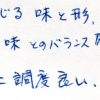 じる 味と形、
味 とのバランス
に調度良い、